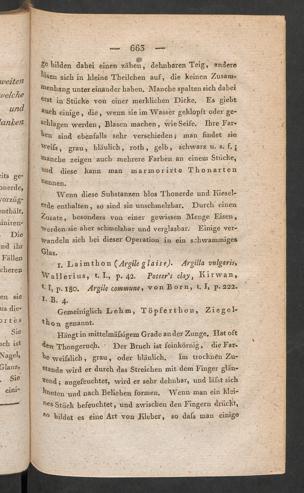 weiten
welche
und
lanken
its ge-
onerde,
vorzüg-
enthält.
initen-
Die
nd ihr
Fällen
cheren
en sie
us die-
ortes
Sie
uch ist
Nagel,
Glanz,
Sie
eini-
— 663 —
ge bilden dabei einen zähen, dehnbaren Teig, andere
lösen sich in kleine Theilchen auf, die keinen Zusam-
menhang unter einander haben. Manche spalten sich dabei
erst in Stücke von einer merklichen Dicke. Es giebt
auch einige, die, wenn sie im Wasser geklopft oder ge-
schlagen werden, Blasen machen, wie Seife. Ihre Far-
ben sind ebenfalls sehr verschieden; man findet sie
weiß, grau, bläulich, roth, gelb, schwarz u. s. f.;
manche zeigen auch mehrere Farben an einem Stücke,
und diese kann man marmorirte Thonarten
nennen.
Wenn diese Substanzen blos Thonerde und Kiesel-
erde enthalten, so sind sie unschmelzbar. Durch einen
Zusatz, besonders von einer gewissen Menge Eisen,
werden sie aber schmelzbar und verglasbar. Einige ver-
wandeln sich bei dieser Operation in ein schwammiges
Glas.
1. Laimthon (Argile glaise). Argilla vulgaris,
Wallerius, t. I., p. 42. Potter's clay, Kirwan,
t. I, p. 180. Argile commune, von Born, t. I, p. 222.
I. B. 4.
Gemeiniglich Lehm, Töpferthon, Ziegel-
thon genannt.
Hängt in mittelmäßigem Grade an der Zunge. Hat oft
den Thongeruch. Der Bruch ist feinkörnig, die Far-
be weißlich, grau, oder bläulich. Im trocknen Zu-
stande wird er durch das Streichen mit dem Finger glän-
zend; angefeuchtet, wird er sehr dehnbar, und läßt sich
kneten und nach Belieben formen. Wenn man ein klei-
nes Stück befeuchtet, und zwischen den Fingern drückt,
so bildet es eine Art von Kleber, so daß man einige